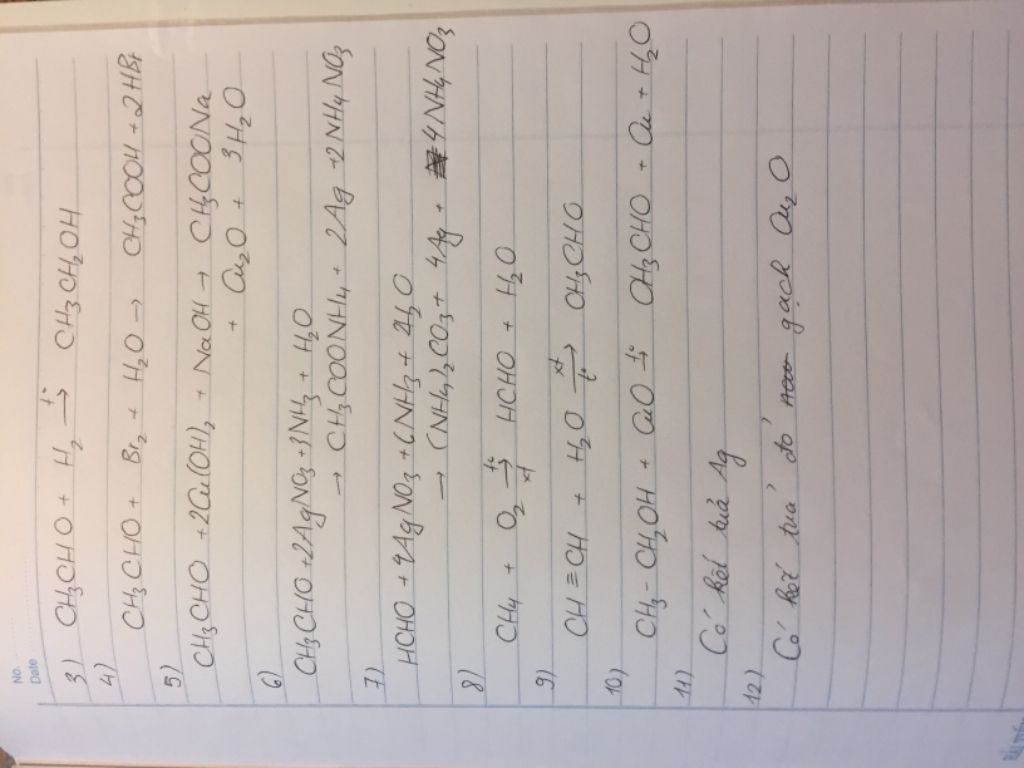 No.
Date
3) CH3CHO + H2 —t°→ CH3CH2OH
4)
CH3CHO + Br2 + H2O → CH3COOH + 2HBr
5)
CH3CHO + 2Cu(OH)2 + NaOH → CH3COONa
+ Cu2O + 3H2O
6)
CH3CHO + 2AgNO3 + 3NH3 + H2O
→ CH3COONH4 + 2Ag + 2NH4NO3
7)
HCHO + 4AgNO3 + 6NH3 + 2H2O
→ (NH4)2CO3 + 4Ag + 4NH4NO3
8)
CH4 + O2 —t°, xt→ HCHO + H2O
9)
CH≡CH + H2O —xt, t°→ CH3CHO
10)
CH3-CH2OH + CuO —t°→ CH3CHO + Cu + H2O
11)
Có kết tủa Ag
12)
Có kết tủa đỏ gạch Cu2O